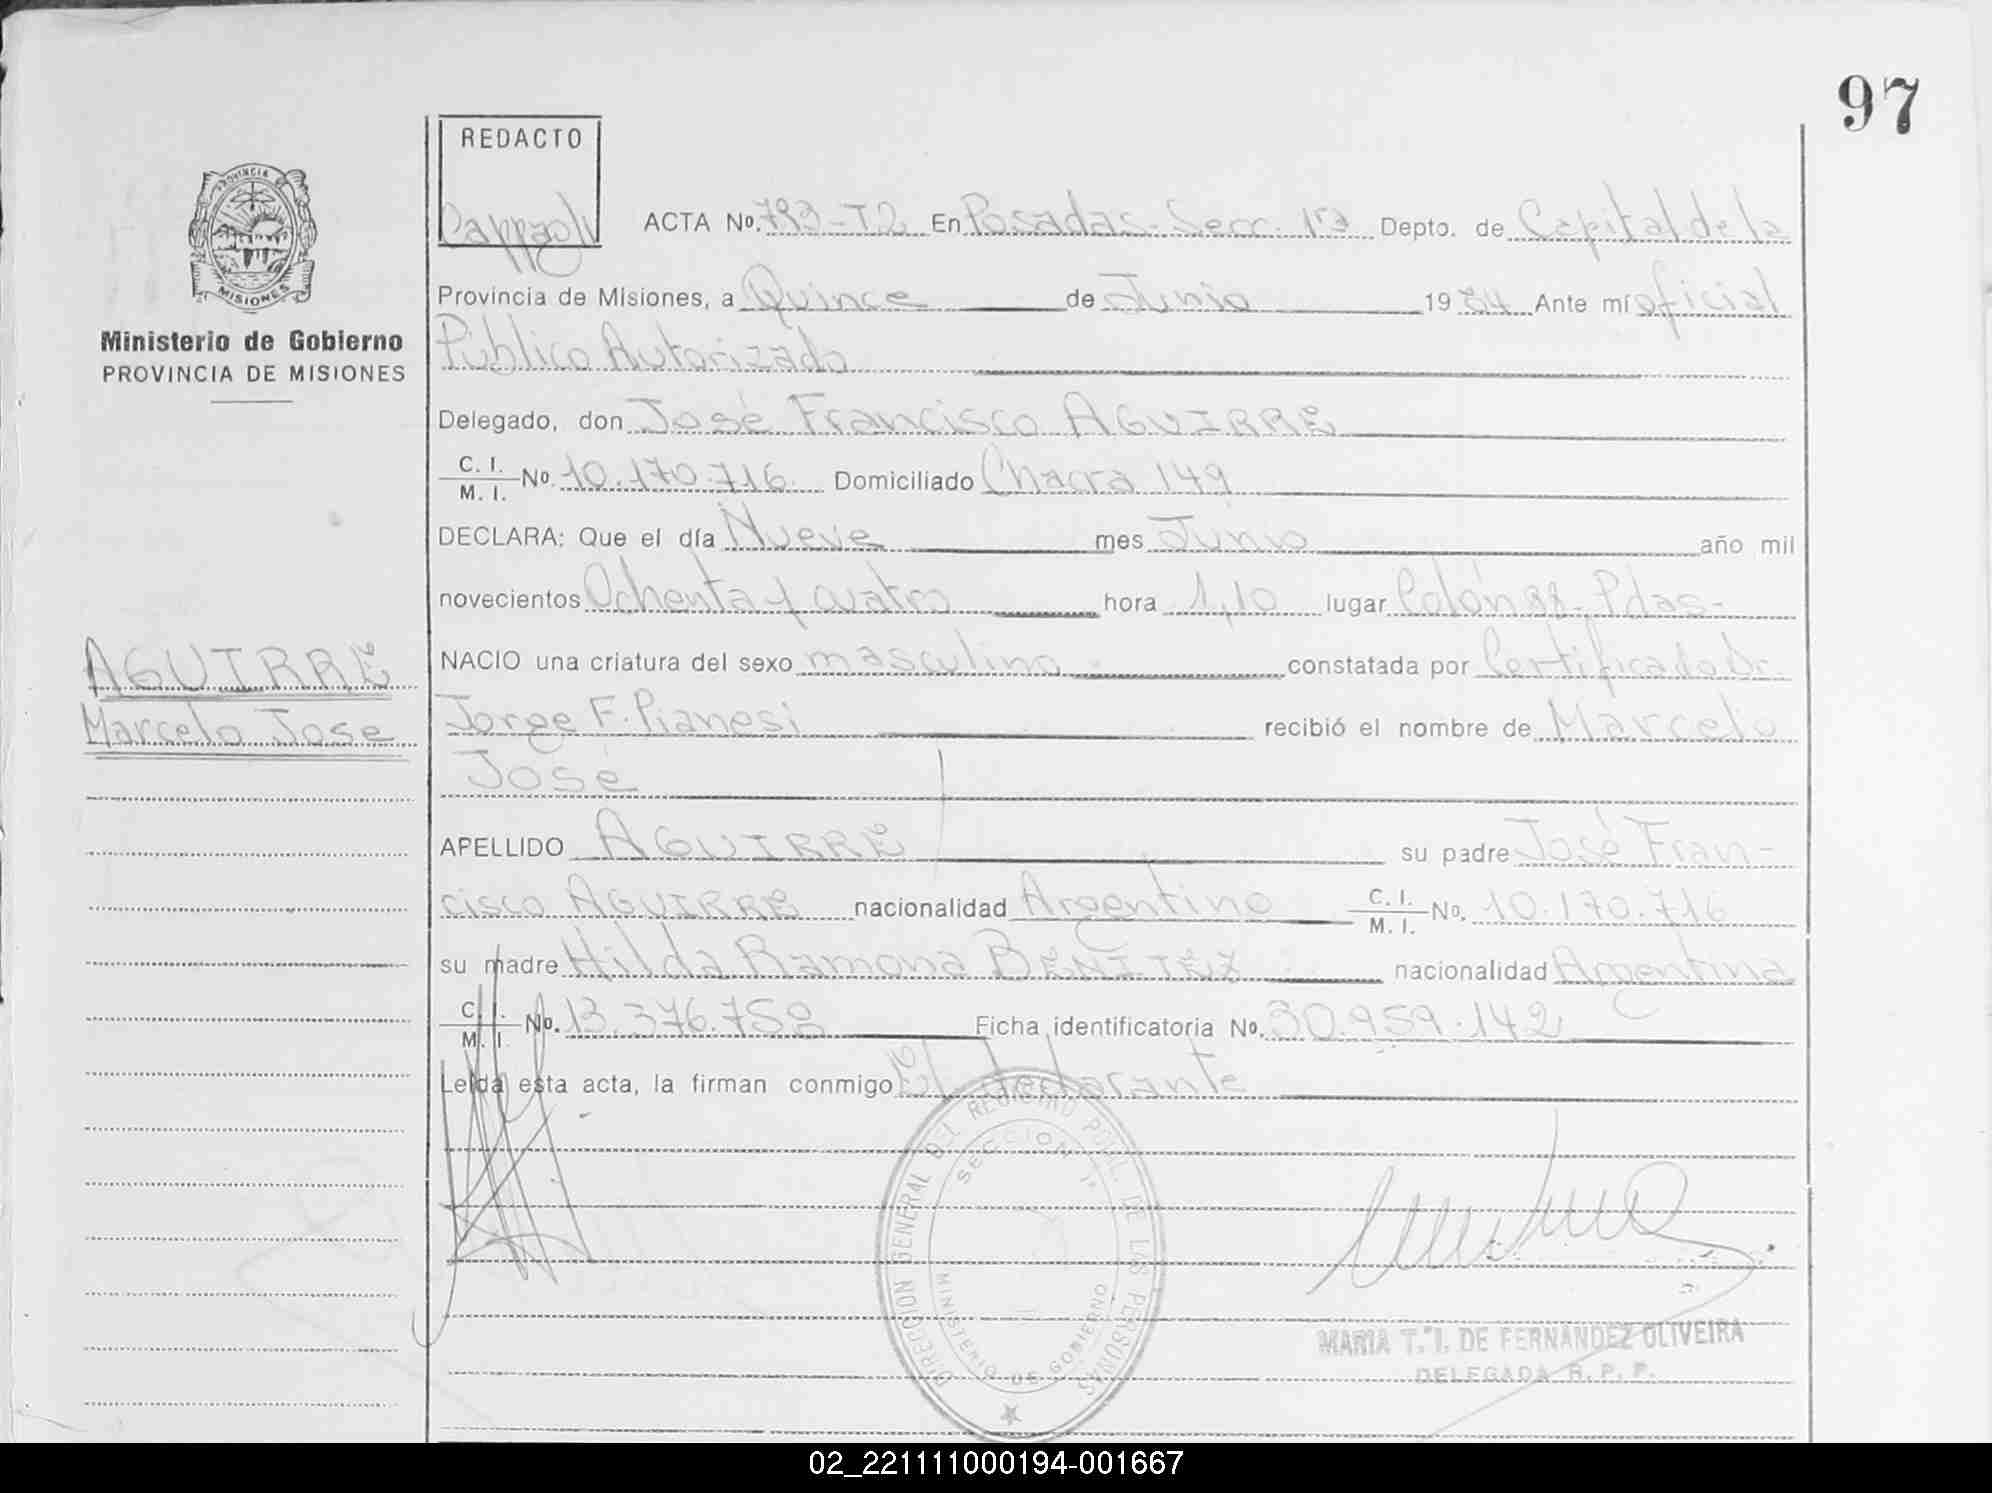 97
REDACTO
PROVINCIA
MISIONES
Ministerio de Gobierno
PROVINCIA DE MISIONES
ACTA No. 793-T2 En Posadas-Secc. 1ra Depto. de Capital de la
Provincia de Misiones, a Quince de Junio 1984 Ante mí oficial
Público Autorizado
Delegado, don José Francisco AGUIRRE
C. I. M. I. No. 10.170.716 Domiciliado Chacra 149
DECLARA: Que el día Nueve mes Junio año mil
novecientos Ochenta y cuatro hora 1,10 lugar Colón 88-Pdas-
NACIO una criatura del sexo masculino constatada por Certificado Dr.
AGUIRRE
Marcelo José
Jorge F. Pianesi recibió el nombre de Marcelo
José
APELLIDO AGUIRRE su padre José Fran-
cisco AGUIRRE nacionalidad Argentino C. I. M. I. No. 10.170.716
su madre Hilda Ramona BENITEZ nacionalidad Argentina
C. I. M. I. No. 13.376.758 Ficha identificatoria No. 30.959.142
Leída esta acta, la firman conmigo El declarante
DIRECCION GENERAL DEL REGISTRO PCIAL. DE LAS PERSONAS
SECCION 1°
MINISTERIO DE GOBIERNO
MARIA T. I. DE FERNANDEZ OLIVEIRA
DELEGADA R. P. P.
02_221111000194-001667